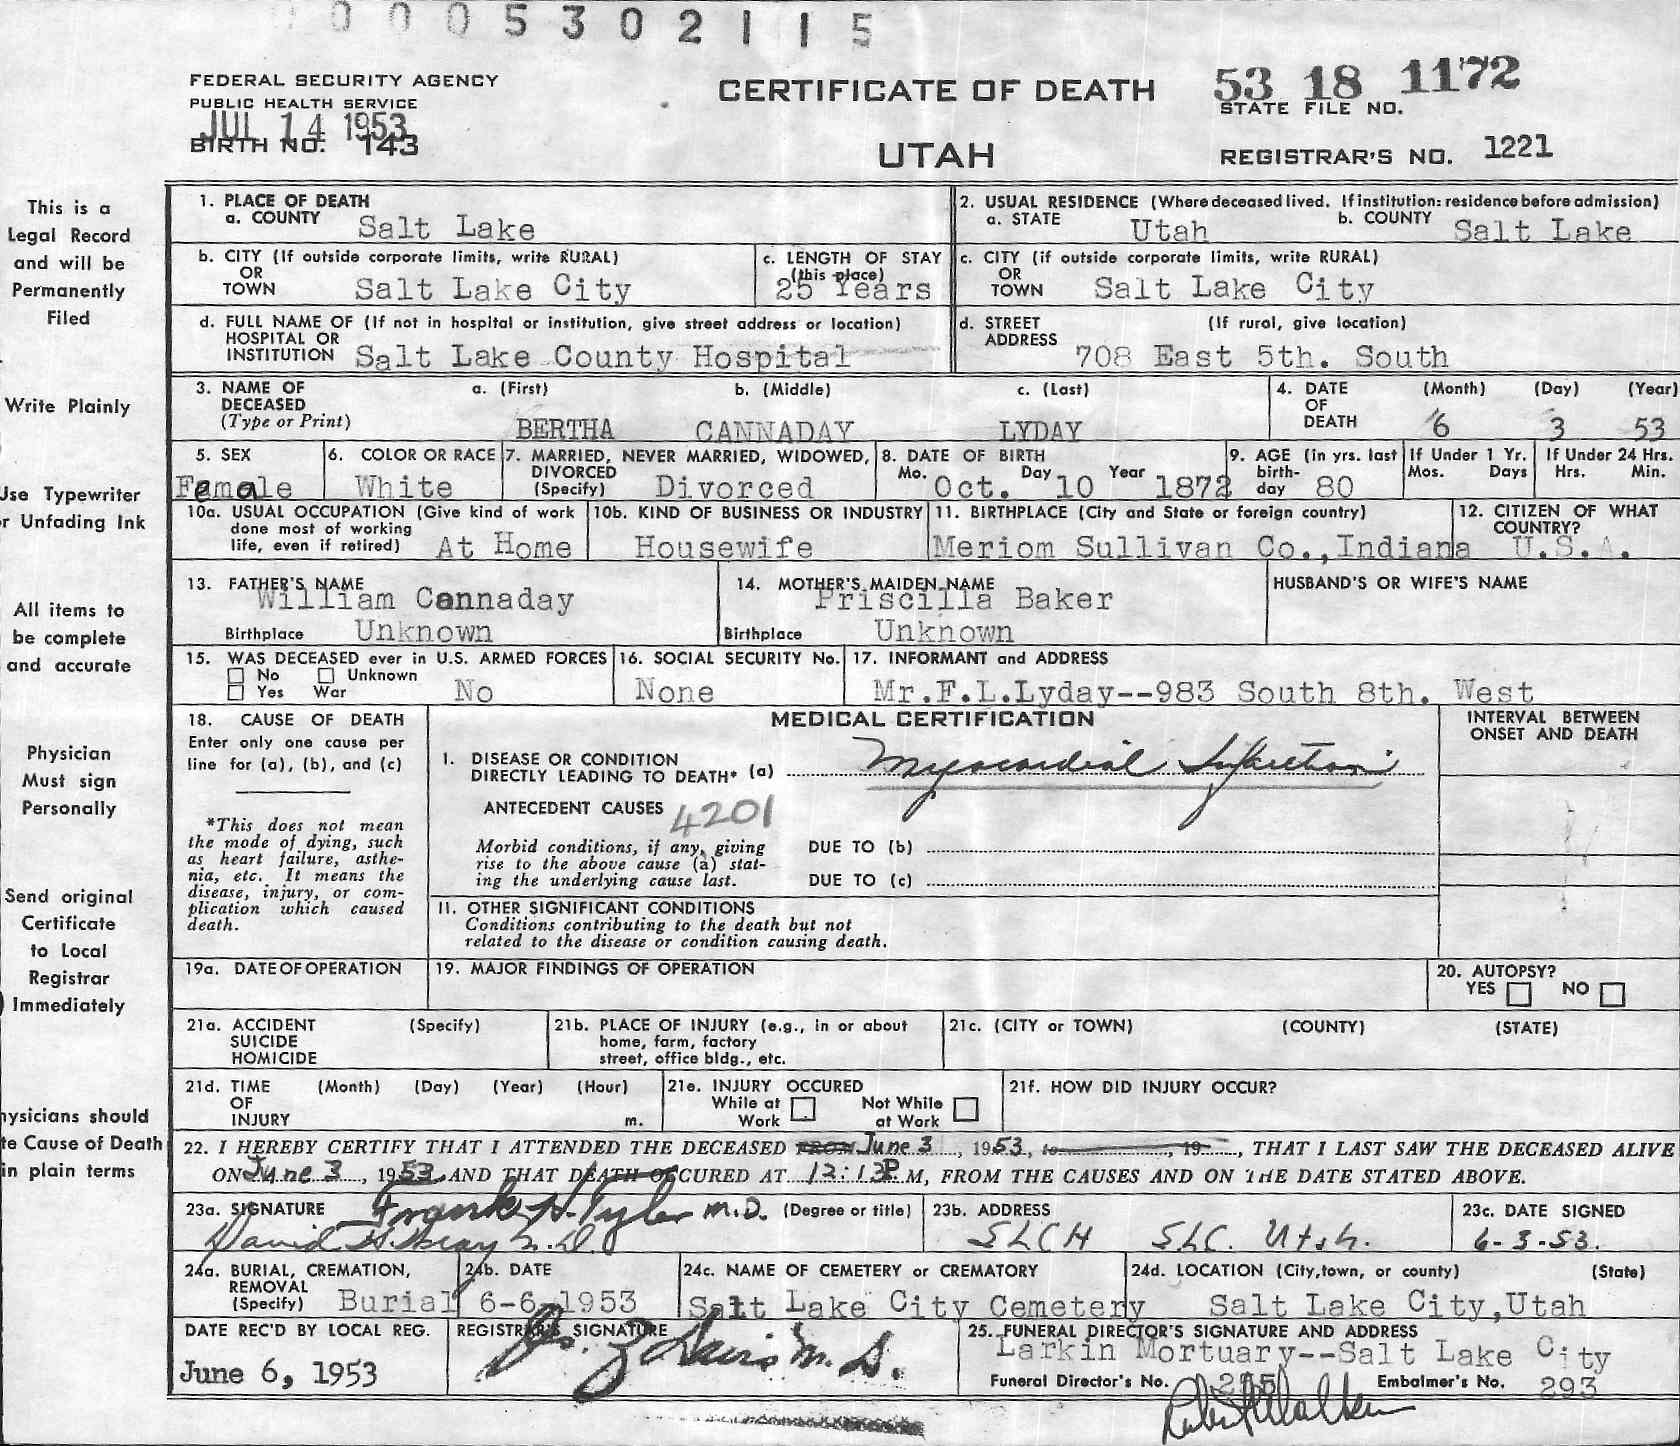 0 0 0 5 3 0 2 1 1 5
FEDERAL SECURITY AGENCY
PUBLIC HEALTH SERVICE
JUL 14 1953
BIRTH NO. 143
CERTIFICATE OF DEATH
UTAH
53 18 1172
STATE FILE NO.
REGISTRAR'S NO. 1221
This is a
Legal Record
and will be
Permanently
Filed
Write Plainly
Use Typewriter
or Unfading Ink
All items to
be complete
and accurate
Physician
Must sign
Personally
Send original
Certificate
to Local
Registrar
Immediately
hysicians should
te Cause of Death
in plain terms
1. PLACE OF DEATH
a. COUNTY Salt Lake
2. USUAL RESIDENCE (Where deceased lived. If institution: residence before admission)
a. STATE Utah b. COUNTY Salt Lake
b. CITY (If outside corporate limits, write RURAL)
OR
TOWN Salt Lake City
c. LENGTH OF STAY
(this place)
25 Years
c. CITY (if outside corporate limits, write RURAL)
OR
TOWN Salt Lake City
d. FULL NAME OF (If not in hospital or institution, give street address or location)
HOSPITAL OR
INSTITUTION Salt Lake County Hospital
d. STREET (If rural, give location)
ADDRESS
708 East 5th. South
3. NAME OF DECEASED (Type or Print)
a. (First) b. (Middle) c. (Last)
BERTHA CANNADAY LYDAY
4. DATE OF DEATH (Month) (Day) (Year)
6 3 53
5. SEX
Female
6. COLOR OR RACE
White
7. MARRIED, NEVER MARRIED, WIDOWED,
DIVORCED
(Specify) Divorced
8. DATE OF BIRTH
Mo. Day Year
Oct. 10 1872
9. AGE (in yrs. last birth-day 80
If Under 1 Yr.
Mos. Days
If Under 24 Hrs.
Hrs. Min.
10a. USUAL OCCUPATION (Give kind of work
done most of working
life, even if retired) At Home
10b. KIND OF BUSINESS OR INDUSTRY
Housewife
11. BIRTHPLACE (City and State or foreign country)
Meriom Sullivan Co., Indiana
12. CITIZEN OF WHAT
COUNTRY?
U.S.A.
13. FATHER'S NAME
William Cannaday
Birthplace Unknown
14. MOTHER'S MAIDEN NAME
Priscilla Baker
Birthplace Unknown
HUSBAND'S OR WIFE'S NAME
15. WAS DECEASED ever in U.S. ARMED FORCES
No Unknown
Yes War No
16. SOCIAL SECURITY No.
None
17. INFORMANT and ADDRESS
Mr.F.L.Lyday--983 South 8th. West
18. CAUSE OF DEATH
Enter only one cause per
line for (a), (b), and (c)
*This does not mean
the mode of dying, such
as heart failure, asthe-
nia, etc. It means the
disease, injury, or com-
plication which caused
death.
MEDICAL CERTIFICATION
INTERVAL BETWEEN
ONSET AND DEATH
I. DISEASE OR CONDITION
DIRECTLY LEADING TO DEATH* (a) Myocardial Infarction
ANTECEDENT CAUSES 4201
Morbid conditions, if any, giving
rise to the above cause (a) stat-
ing the underlying cause last.
DUE TO (b)
DUE TO (c)
11. OTHER SIGNIFICANT CONDITIONS
Conditions contributing to the death but not
related to the disease or condition causing death.
19a. DATE OF OPERATION
19. MAJOR FINDINGS OF OPERATION
20. AUTOPSY?
YES NO
21a. ACCIDENT (Specify)
SUICIDE
HOMICIDE
21b. PLACE OF INJURY (e.g., in or about
home, farm, factory
street, office bldg., etc.
21c. (CITY or TOWN) (COUNTY) (STATE)
21d. TIME (Month) (Day) (Year) (Hour)
OF
INJURY m.
21e. INJURY OCCURED
While at Work Not While at Work
21f. HOW DID INJURY OCCUR?
22. I HEREBY CERTIFY THAT I ATTENDED THE DECEASED FROM June 3, 1953, to , 19 , THAT I LAST SAW THE DECEASED ALIVE
ON June 3, 1953, AND THAT DEATH OCCURED AT 12:13P.M, FROM THE CAUSES AND ON THE DATE STATED ABOVE.
23a. SIGNATURE Frank H. Tyler M.D. (Degree or title)
David
23b. ADDRESS
SLCH SLC. Utah.
23c. DATE SIGNED
6-3-53.
24a. BURIAL, CREMATION,
REMOVAL
(Specify) Burial
24b. DATE
6-6-1953
24c. NAME OF CEMETERY or CREMATORY
Salt Lake City Cemetery
24d. LOCATION (City, town, or county) (State)
Salt Lake City, Utah
DATE REC'D BY LOCAL REG.
June 6, 1953
REGISTRAR'S SIGNATURE
Davis M.D.
25. FUNERAL DIRECTOR'S SIGNATURE AND ADDRESS
Larkin Mortuary--Salt Lake City
Funeral Director's No. Embalmer's No. 293